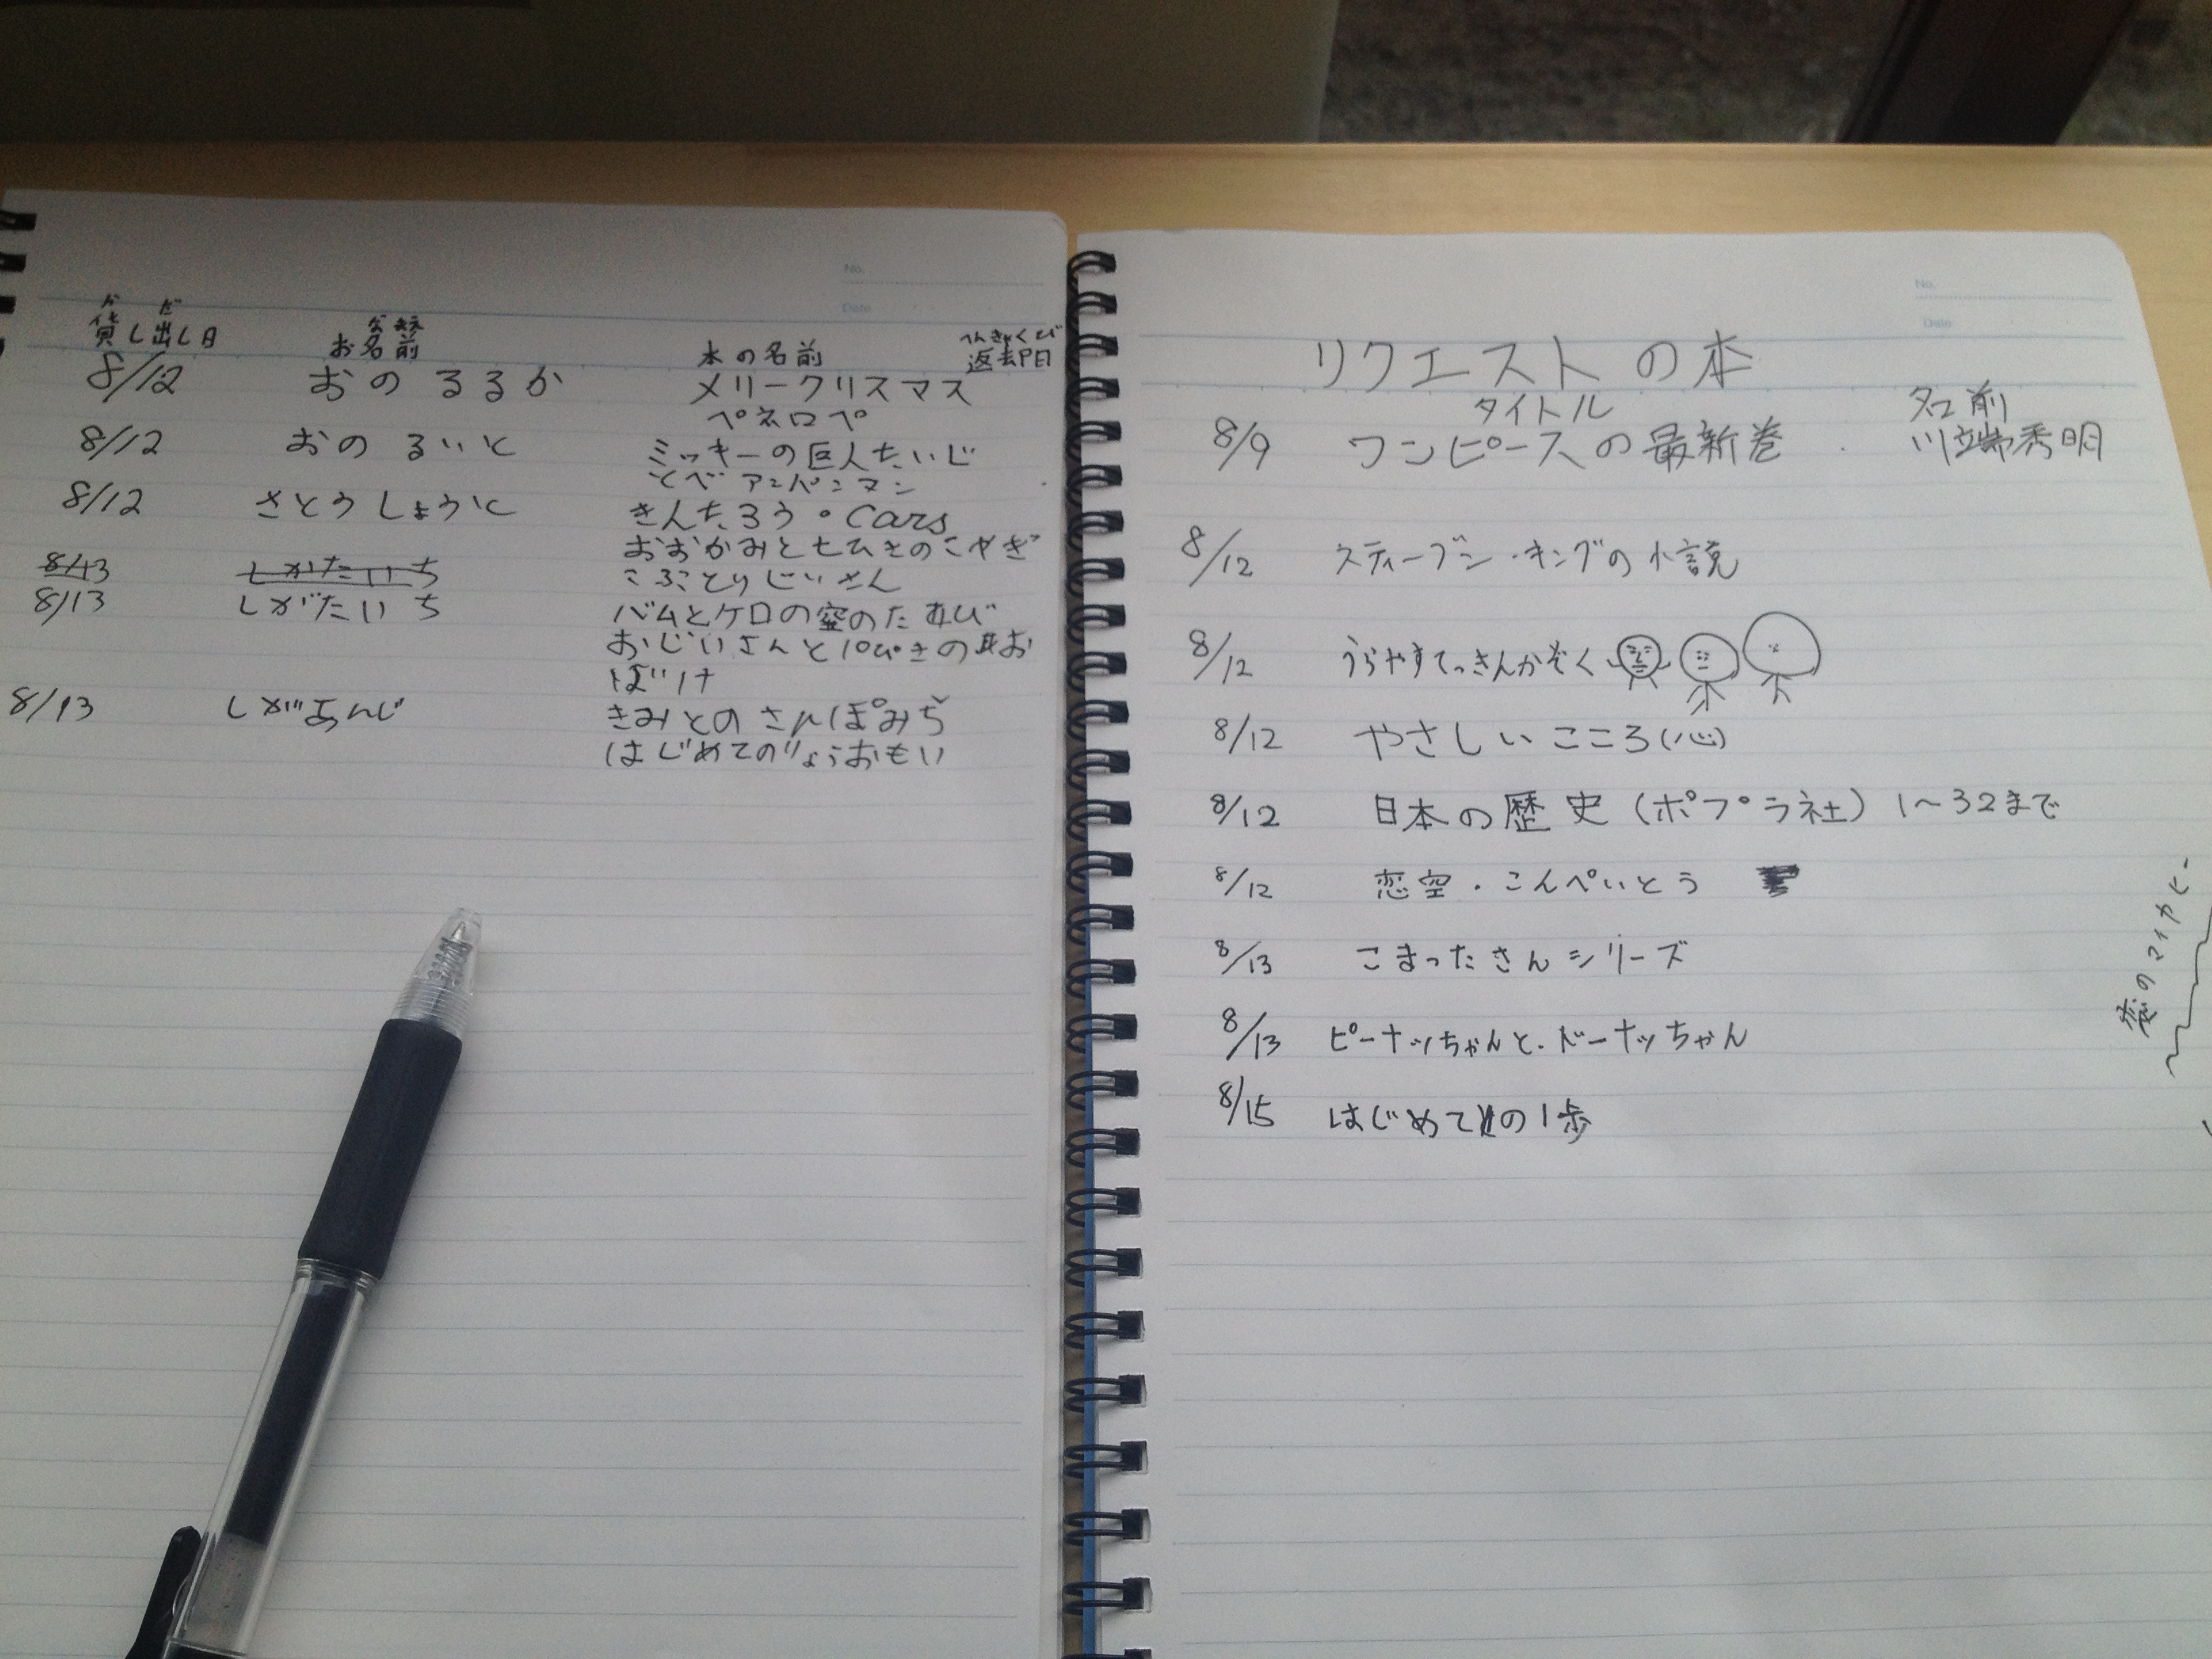 No.
Date
か だ
貸し出し日
なまえ
お名前
本の名前
へんきゃくび
返却日
8/12 おの るるか メリークリスマス
ペネロペ
8/12 おの るいと ミッキーの巨人たいじ
とべ アンパンマン
8/12 さとうしょうと きんたろう・Cars
おおかみと七ひきのこやぎ
8/13 しがたいち こぶとりじいさん
8/13 しがたいち バムとケロの空のたび
おじいさんと10ぴきのお
ばけ
8/13 しがあんじ きみとのさんぽみち
はじめてのりょうおもい
No.
Date
リクエストの本
タイトル 名前
8/9 ワンピースの最新巻 川端秀明
8/12 スティーブン・キングの小説
8/12 うらやすてっきんかぞく
8/12 やさしいこころ(心)
8/12 日本の歴史(ポプラ社) 1〜32まで
8/12 恋空・こんぺいとう
8/13 こまったさんシリーズ
8/13 ピーナッちゃんと・ドーナッちゃん
8/15 はじめての1歩
恋のマイヤヒー